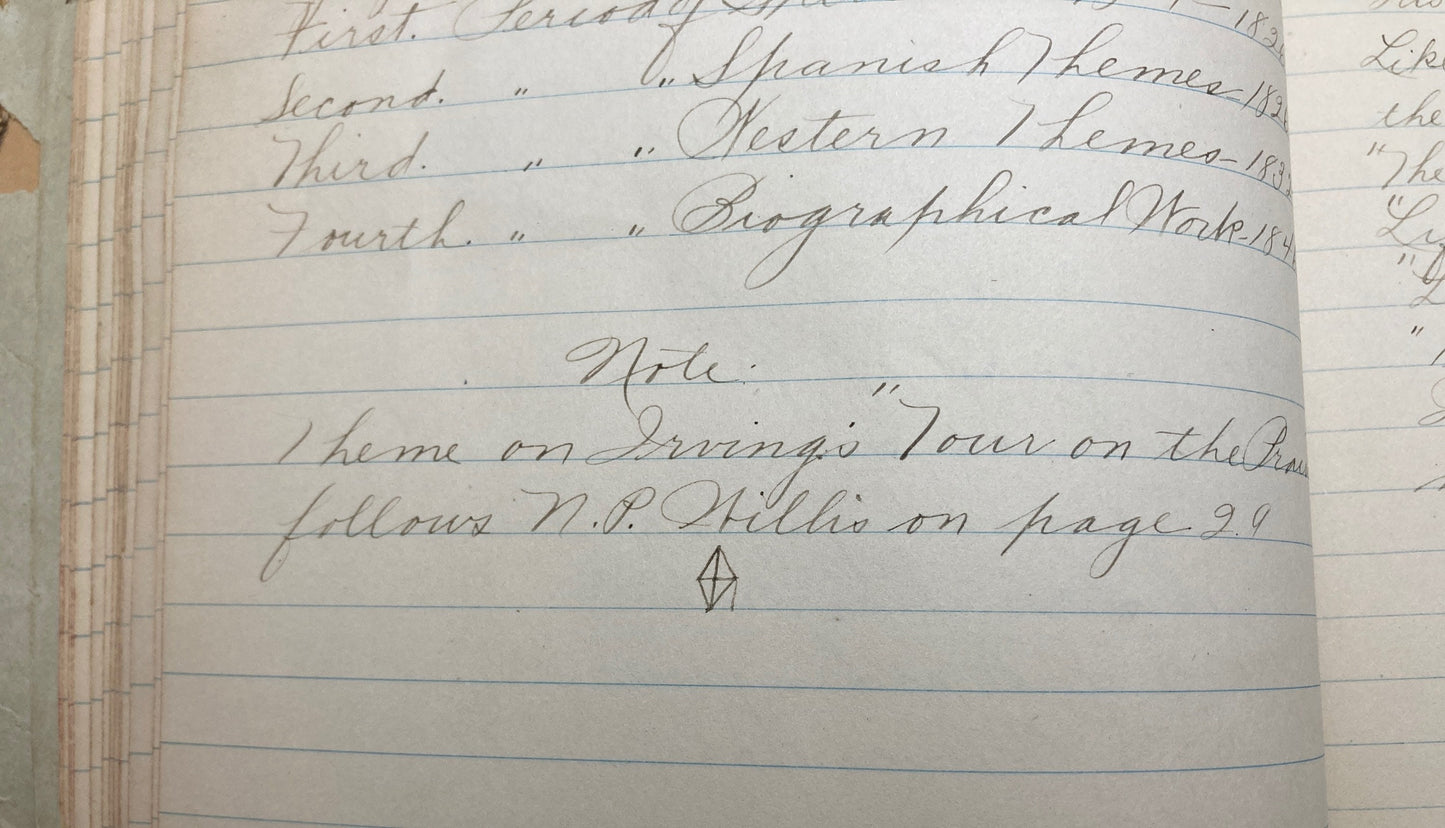 First. Period
Second. " " Spanish Themes-182
Third. " " Western Themes-183
Fourth. " " Biographical Work-184
Note:
Theme on Irving's "Tour on the Prai
follows N.P. Willis on page 29
Like
the
"The